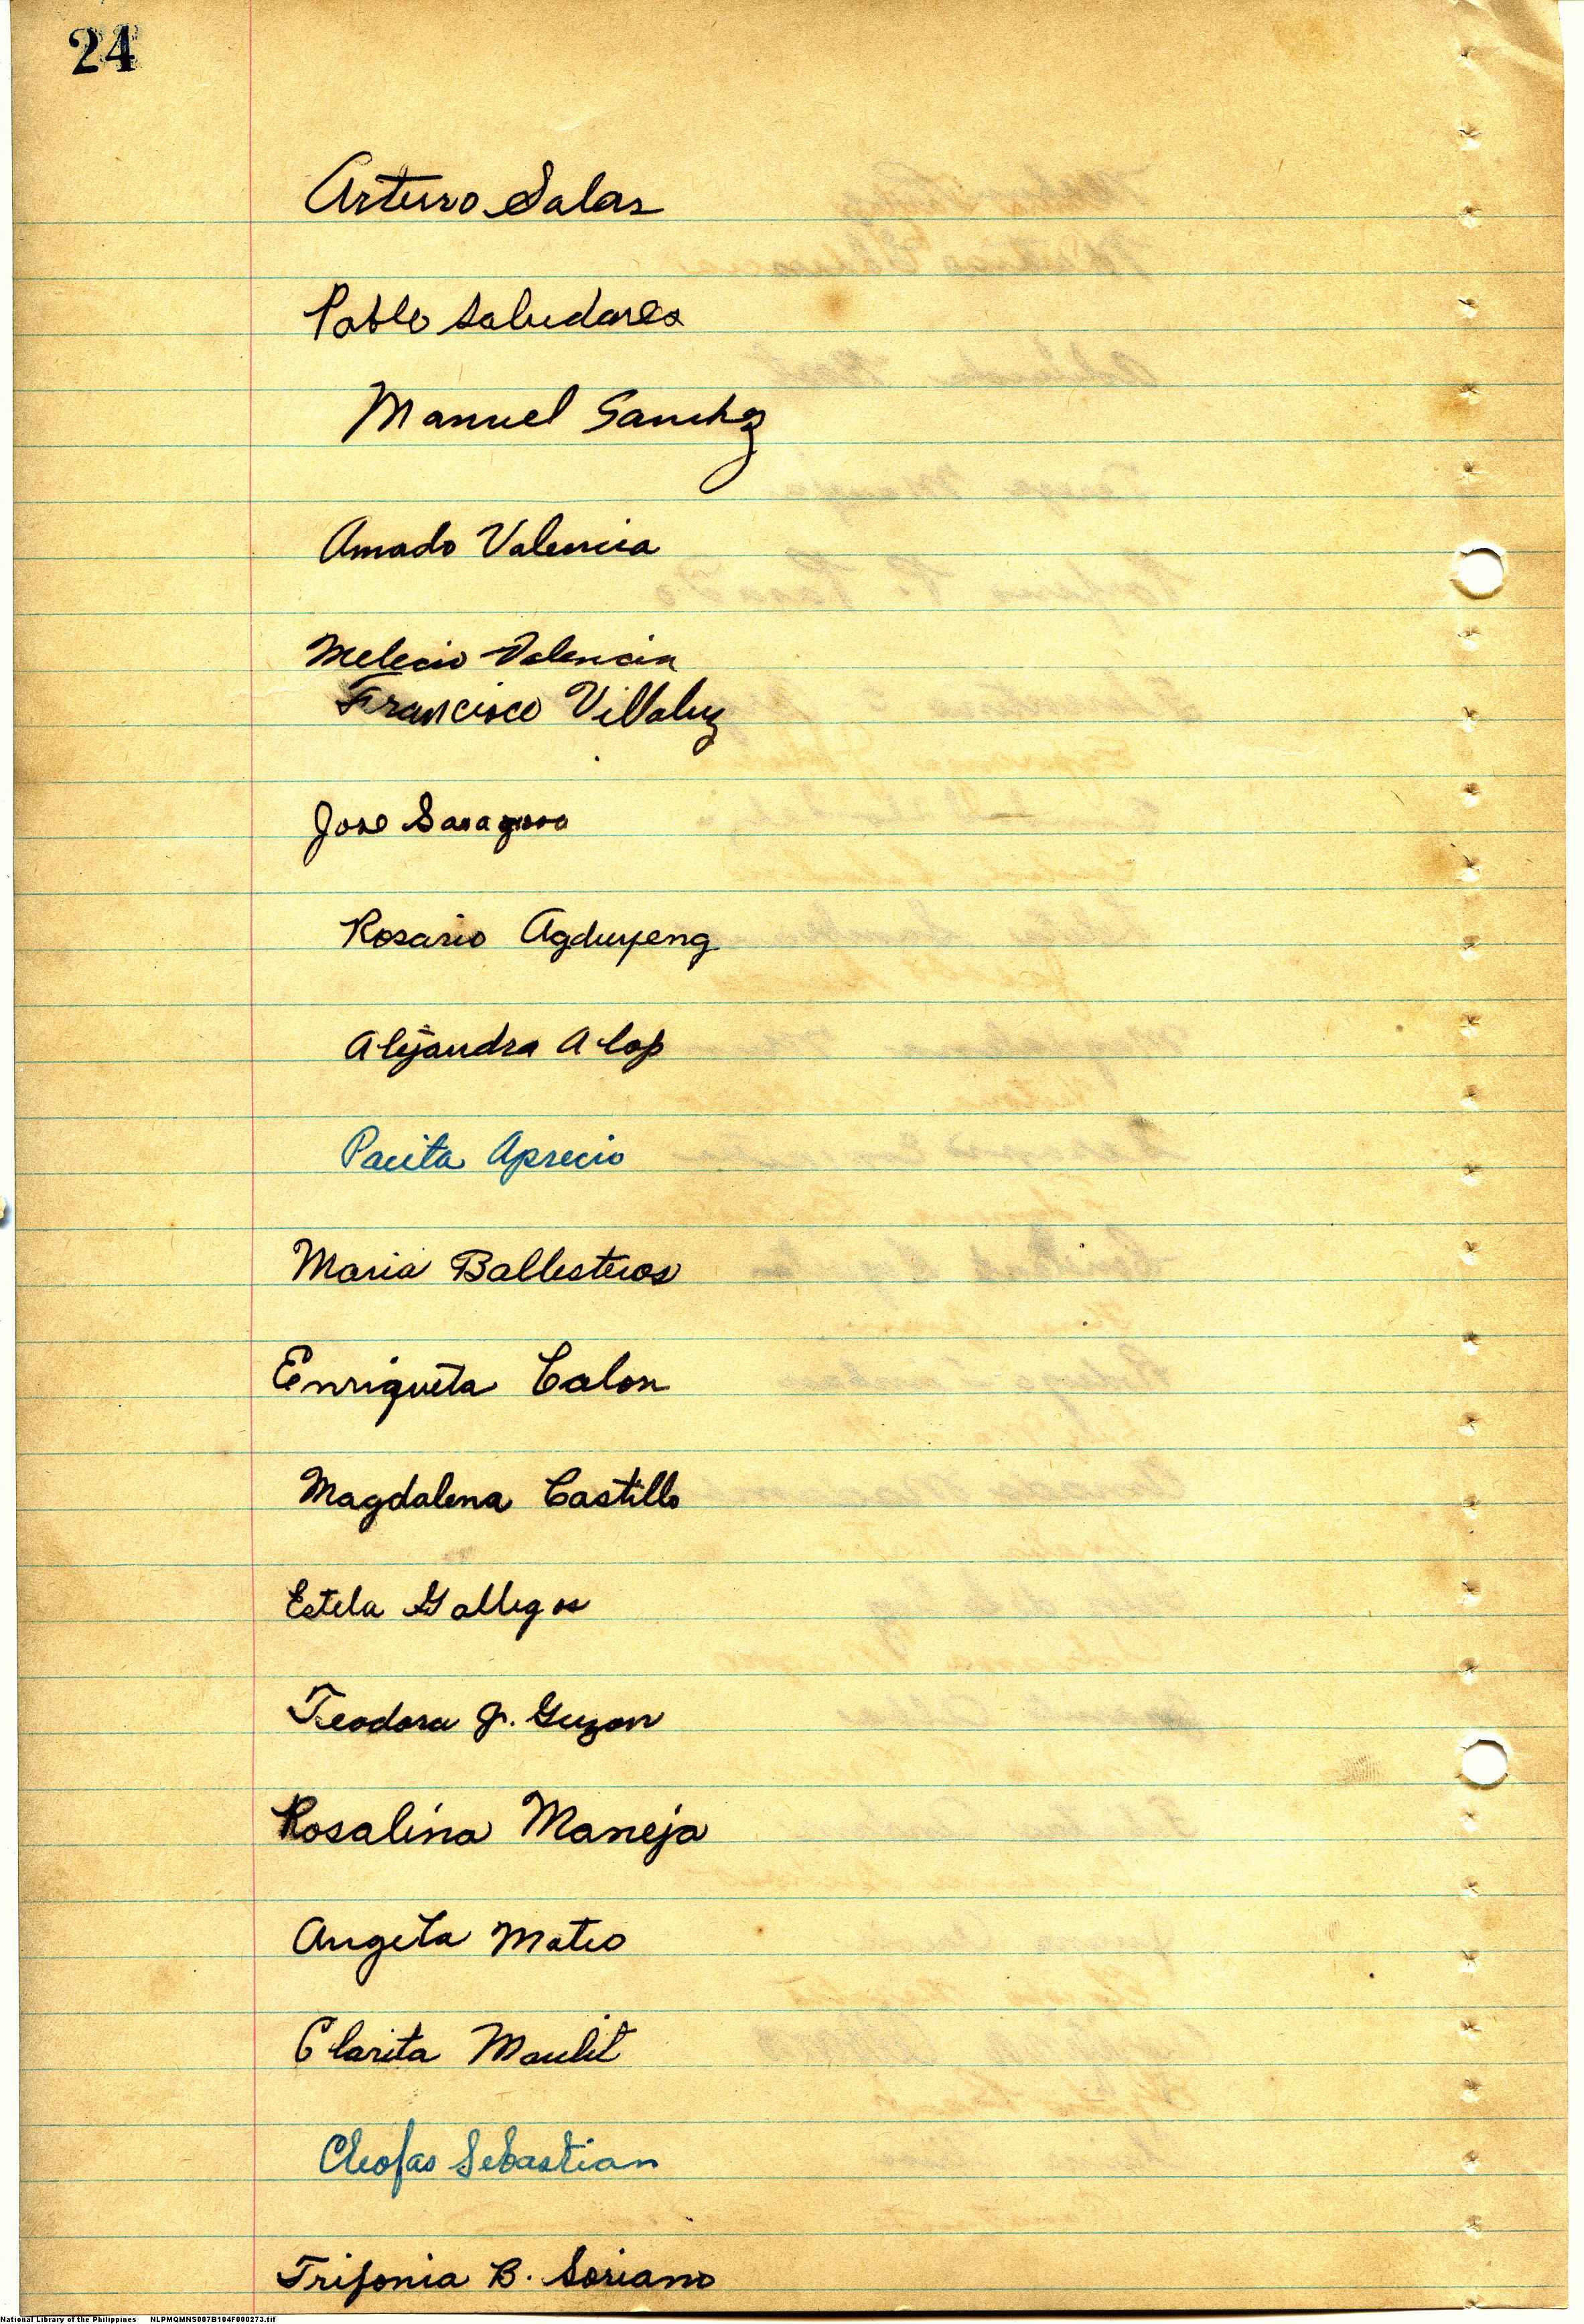 24
Arturo Salas
Pablo Saludares
Manuel Sanchez
Amado Valencia
Melecio Valencia
Francisco Villaluz
Jose Saragoso
Rosario Agduyeng
Alejandra Alop
Pacita Aprecio
Maria Ballesteros
Enriqueta Calon
Magdalena Castillo
Estela Gallegos
Teodora J. Guzon
Rosalina Maneja
Angita Mateo
Clarita Maulit
Cleofas Sebastian
Trifonia B. Soriano
National Library of the Philippines NLPMQMNS007B104F000273.tif